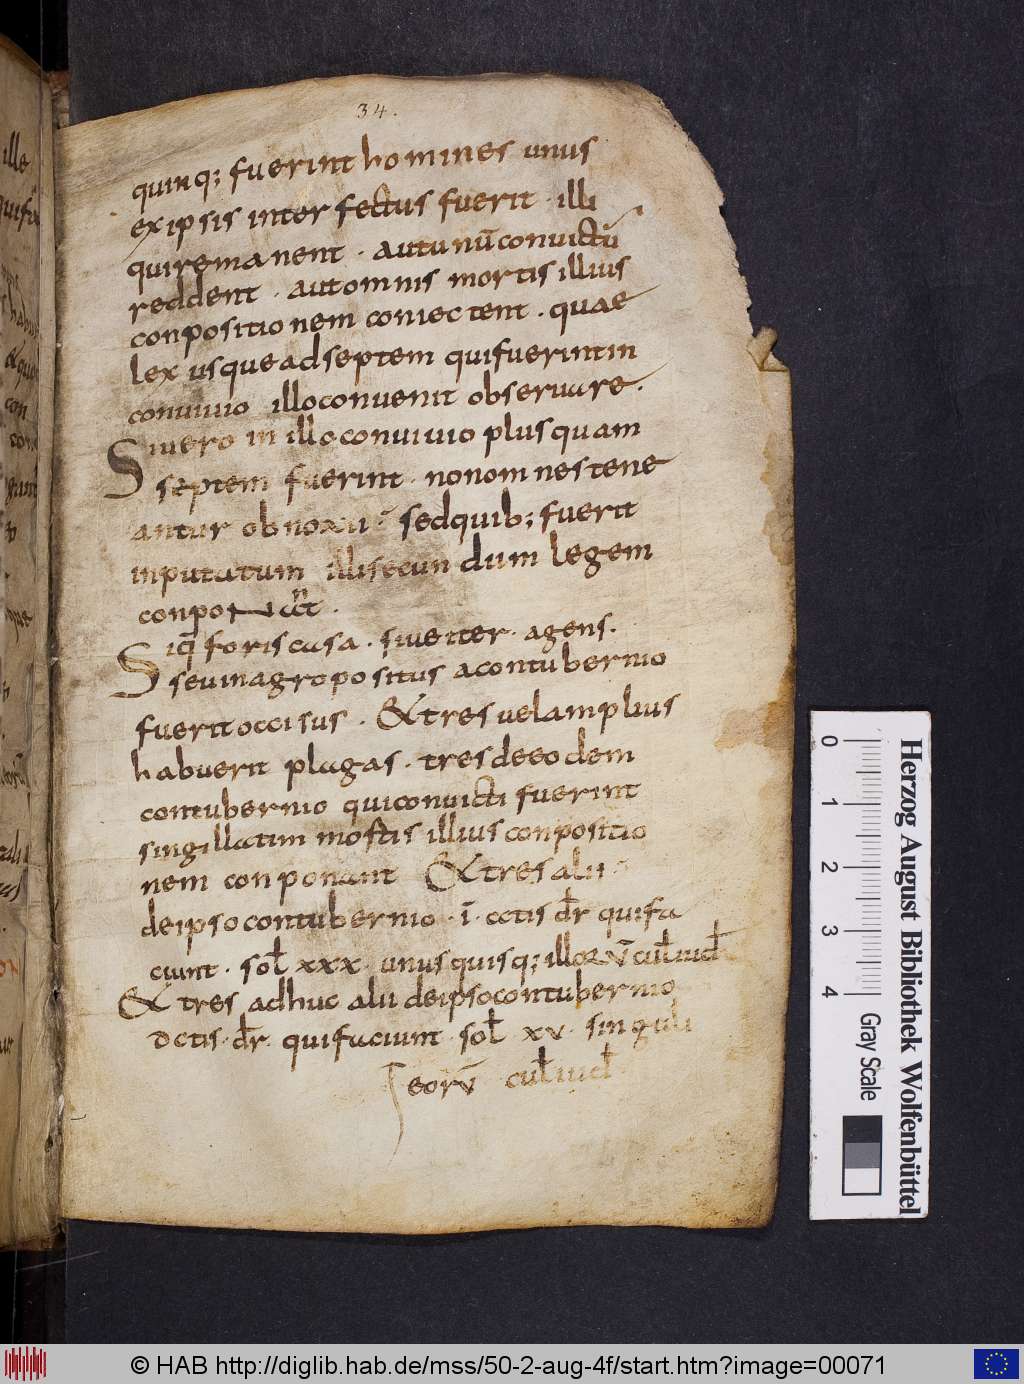 34.
quinq; fuerint homines unus
ex ipsis inter fectus fuerit · illi
qui rema nent · aut unū convictū
reddent · aut omnis mortis illius
conpositio nem coniec tent · quae
lex usque ad septem qui fuerint in
convivio illo convenit observare.
Si vero in illo convivio plus quam
septem fuerint · non omnes tene
antur obnoxii · sed quib; fuerit
inputatum illi secun dum legem
conponant .
Siq̄ foris casa · sive iter · agens.
seu in agro positus a contubernio
fuerit occisus . & tres vel amplius
habuerit plagas · tres de eodem
contubernio qui convicti fuerint
singillatim mortis illius conpositio
nem conponant & tres alii ·
de ipso contubernio · ī · cctis dr̄ qui fa
ciunt · sol xxx · unus quisq; illorū cul iud
& tres adhuc alii de ipso contubernio
dctis · dr̄ · qui faciunt · sol xv · singuli
eorū cul iud
ille
con
0 1 2 3 4
Gray Scale
Herzog August Bibliothek Wolfenbüttel
© HAB http://diglib.hab.de/mss/50-2-aug-4f/start.htm?image=00071